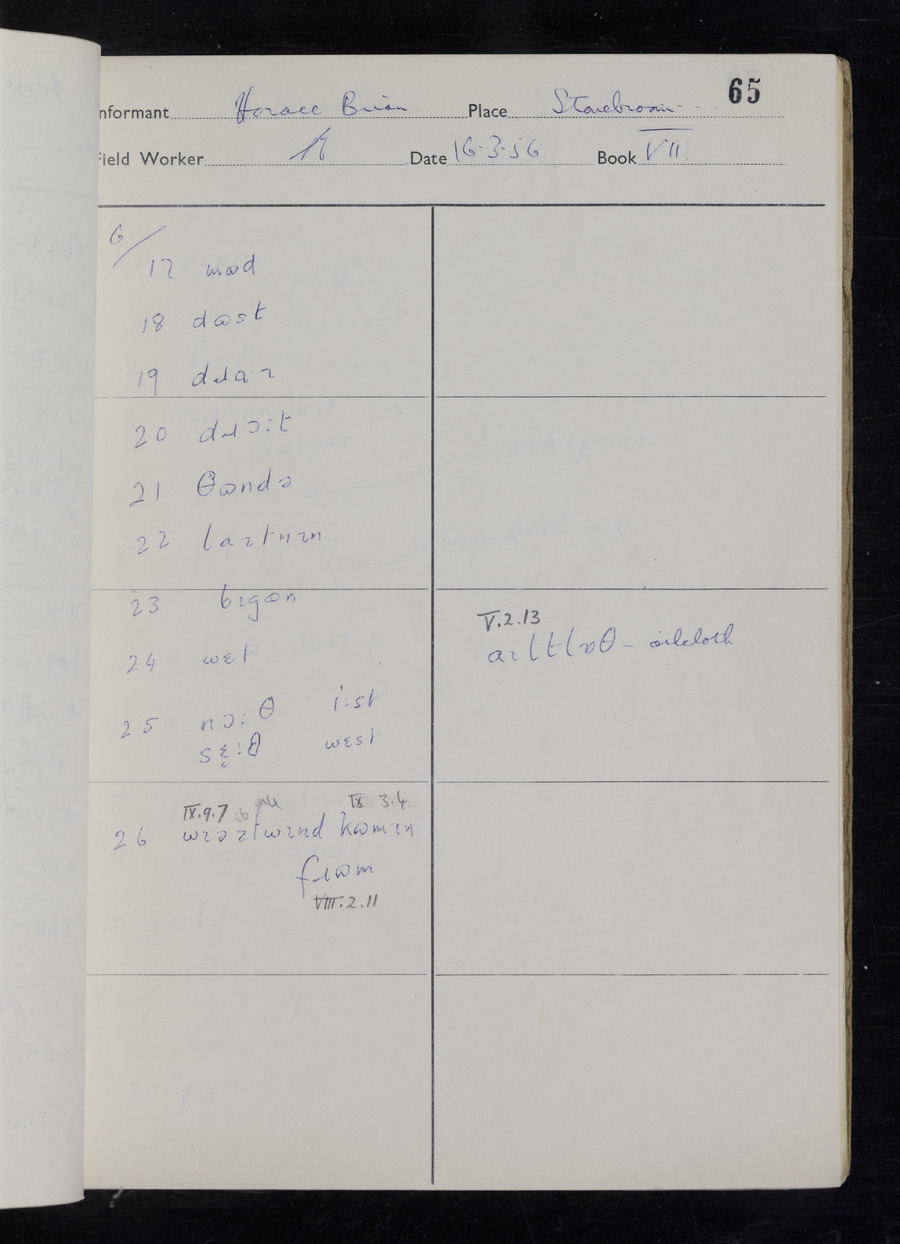 65
Informant Horace Brian Place Stonebroom
Field Worker Date 16.3.56 Book VII
6/
17 mɷd
18 dɷst
19 dɹaɪ
20 dɹɔ:t
21 θɷndə
22 laɪtnɪn
23 bɪgɷn
24 wɛt
25 nɔ:θ i:st
sɛ̤:θ wɛst
IX.9.7 IX 3.4
26 wɪəɪtwɪnd kɷmɪn
fɹɷm
VIII.2.11
V.2.13
aɪltlɒθ - oilcloth